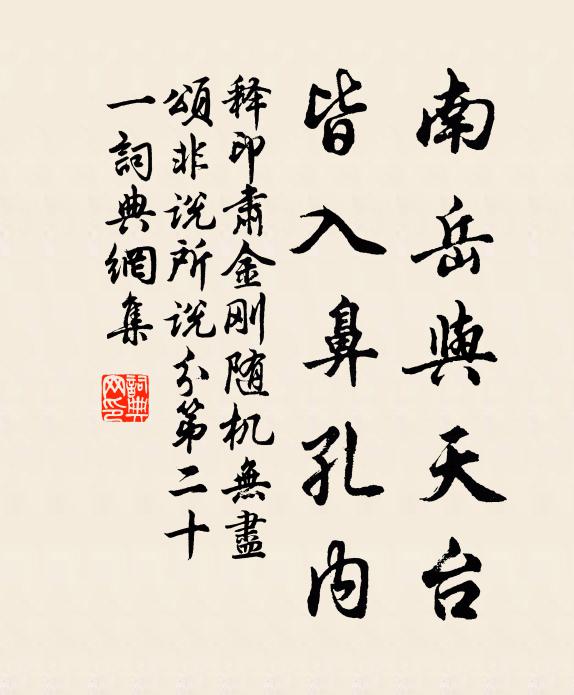 南岳與天台
皆入鼻孔内
释印肃金刚随机無盡
頌非说所说分第二十
一詞典網集
詞典
网印